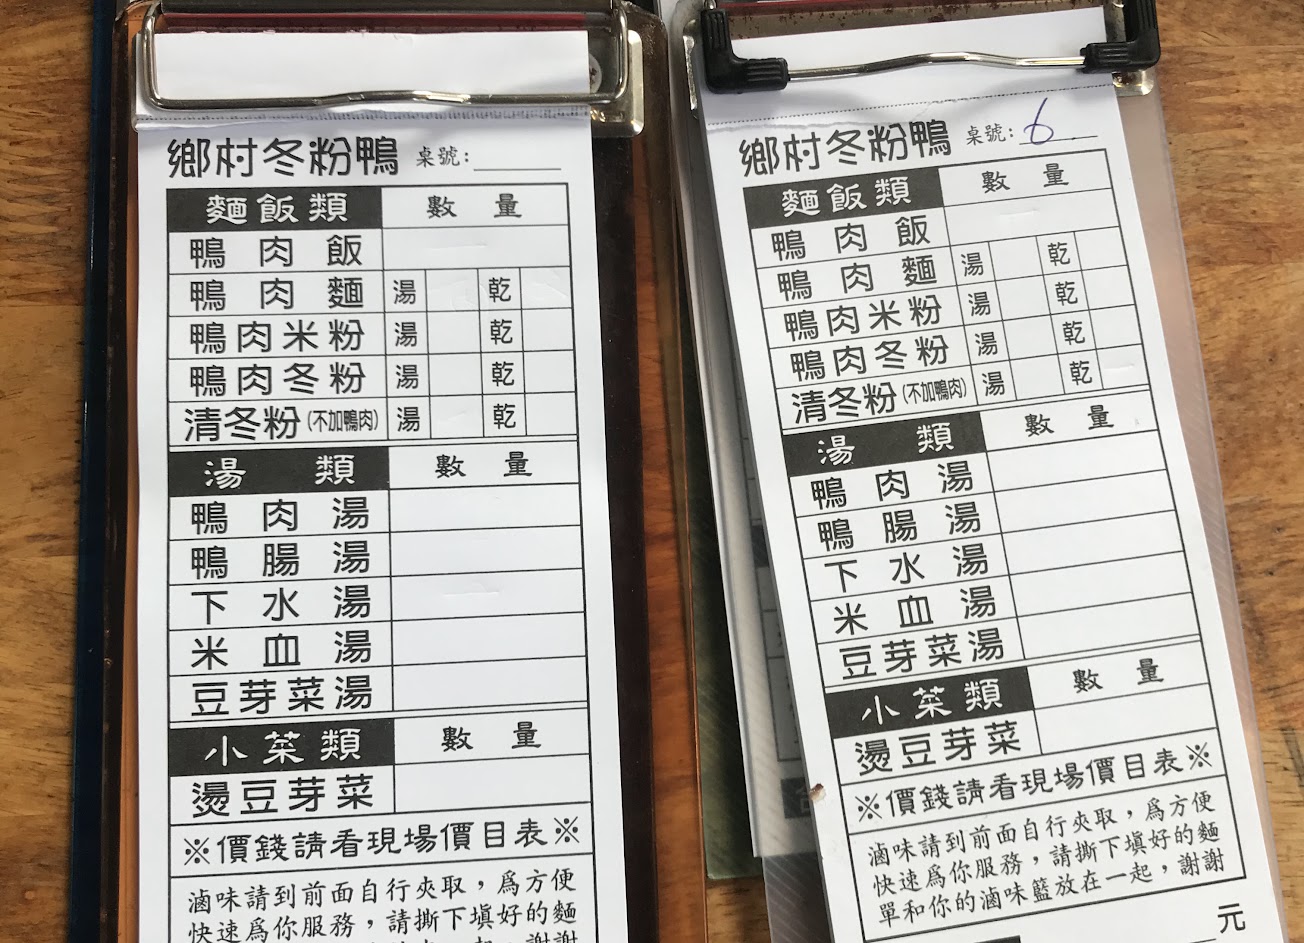 鄉村冬粉鴨 桌號:
麵飯類 數量
鴨肉飯
鴨肉麵 湯 乾
鴨肉米粉 湯 乾
鴨肉冬粉 湯 乾
清冬粉(不加鴨肉) 湯 乾
湯類 數量
鴨肉湯
鴨腸湯
下水湯
米血湯
豆芽菜湯
小菜類 數量
燙豆芽菜
※價錢請看現場價目表※
滷味請到前面自行夾取，為方便
快速為你服務，請撕下填好的麵
鄉村冬粉鴨 桌號: 6
麵飯類 數量
鴨肉飯
鴨肉麵 湯 乾
鴨肉米粉 湯 乾
鴨肉冬粉 湯 乾
清冬粉(不加鴨肉) 湯 乾
湯類 數量
鴨肉湯
鴨腸湯
下水湯
米血湯
豆芽菜湯
小菜類 數量
燙豆芽菜
※價錢請看現場價目表※
滷味請到前面自行夾取，為方便
快速為你服務，請撕下填好的麵
單和你的滷味籃放在一起，謝謝
元